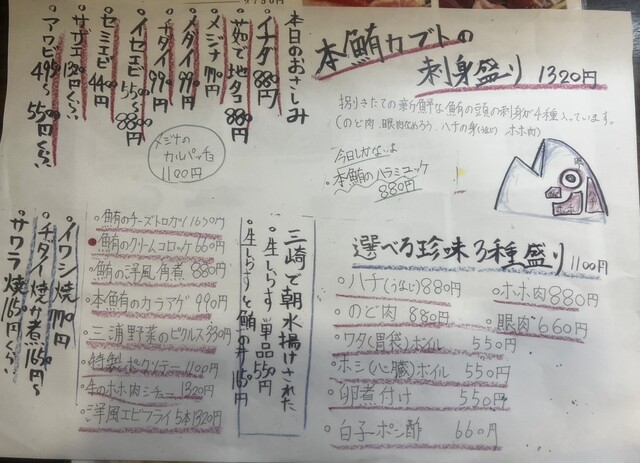 本鮪カブトの
刺身盛り 1320円
捌きたての新鮮な鮪の頭の刺身が4種入っています。
(のど肉 眼肉なめろう ハチの身(うなじ) ホホ肉)
今日しかないよ
本鮪のハラミユッケ
880円
本日のおさしみ
・イナダ 880円
・茹で地タコ 880円
・メジナ 770円
・メダイ 990円
・チダイ 990円
・イセエビ 5500〜8800円
・セミエビ 440円
・サザエ 1320円くらい
・アワビ 495〜5500円くらい
メジナの
カルパッチョ
1100円
選べる珍味3種盛り 1100円
・ハチ(うなじ) 880円
・のど肉 880円
・ワタ(胃袋)ボイル 550円
・ホシ(心臓)ボイル 550円
・卵煮付け 550円
・白子ポン酢 660円
・ホホ肉 880円
・眼肉 660円
三崎で朝水揚げされた
・生しらす 単品 550円
・生しらすと鮪の丼 1650円
・鮪のチーズトロカツ 1650円
・鮪のクリームコロッケ 660円
・鮪の洋風角煮 880円
・本鮪のカラアゲ 990円
・三浦野菜のピクルス 330円
・特製ポークソテー 1100円
・牛のホホ肉シチュー 1320円
・洋風エビフライ 5本 1320円
・イワシ焼 770円
・チダイ焼か煮 1650円〜
・サワラ焼 1650円くらい